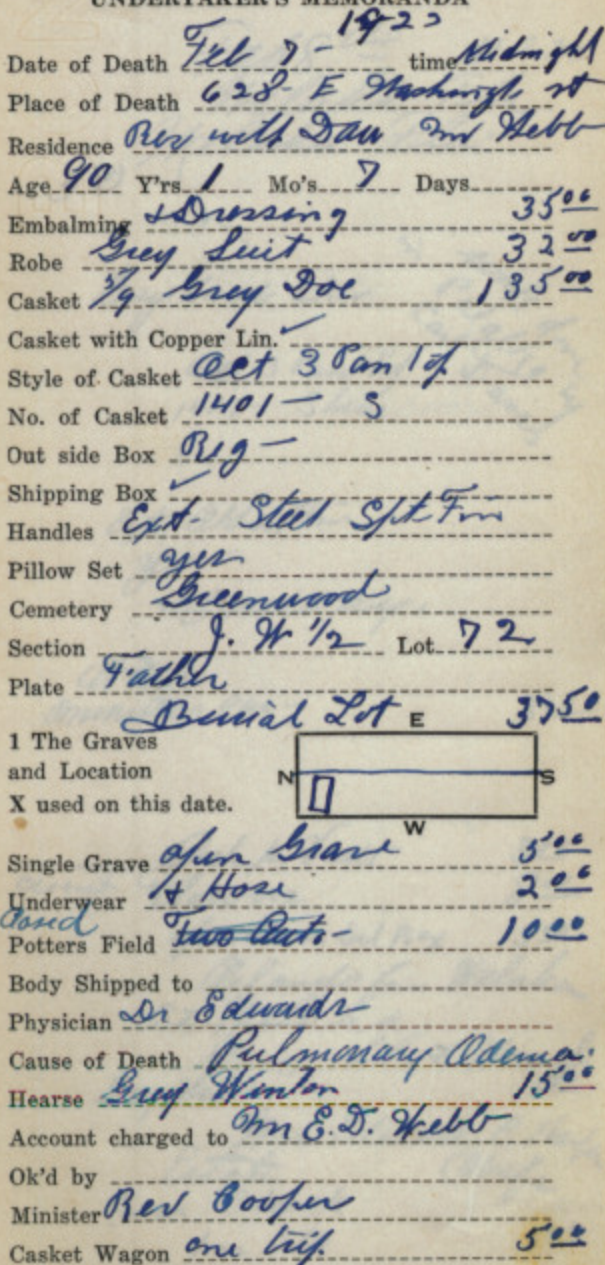 UNDERTAKER'S MEMORANDA
Date of Death Feb 7 - 1923 time Midnight
Place of Death 628 E Washingt st
Residence Res with Dau Mrs Webb
Age 90 Y'rs 1 Mo's 7 Days
Embalming & Dressing 35 00
Robe Grey Suit 32 00
Casket Grey Doe 135 00
Casket with Copper Lin. ✓
Style of Casket Oct 3 Pan Top
No. of Casket 1401 - S
Out side Box Reg -
Shipping Box ✓
Handles Ext - Steel
Pillow Set yes
Cemetery Greenwood
Section W 1/2 Lot 72
Plate Father
Burial Lot 37 50
E
1 The Graves
and Location N S
X used on this date.
W
Single Grave open Grave 5 00
Underwear & Hose 2 00
Closed
Potters Field Two Auto - 10 00
Body Shipped to
Physician Dr Edwards
Cause of Death Pulmonary Odema.
Hearse Grey Winton 15 00
Account charged to Mr E.D. Webb
Ok'd by
Minister Rev Cooper
Casket Wagon one trip. 5 00